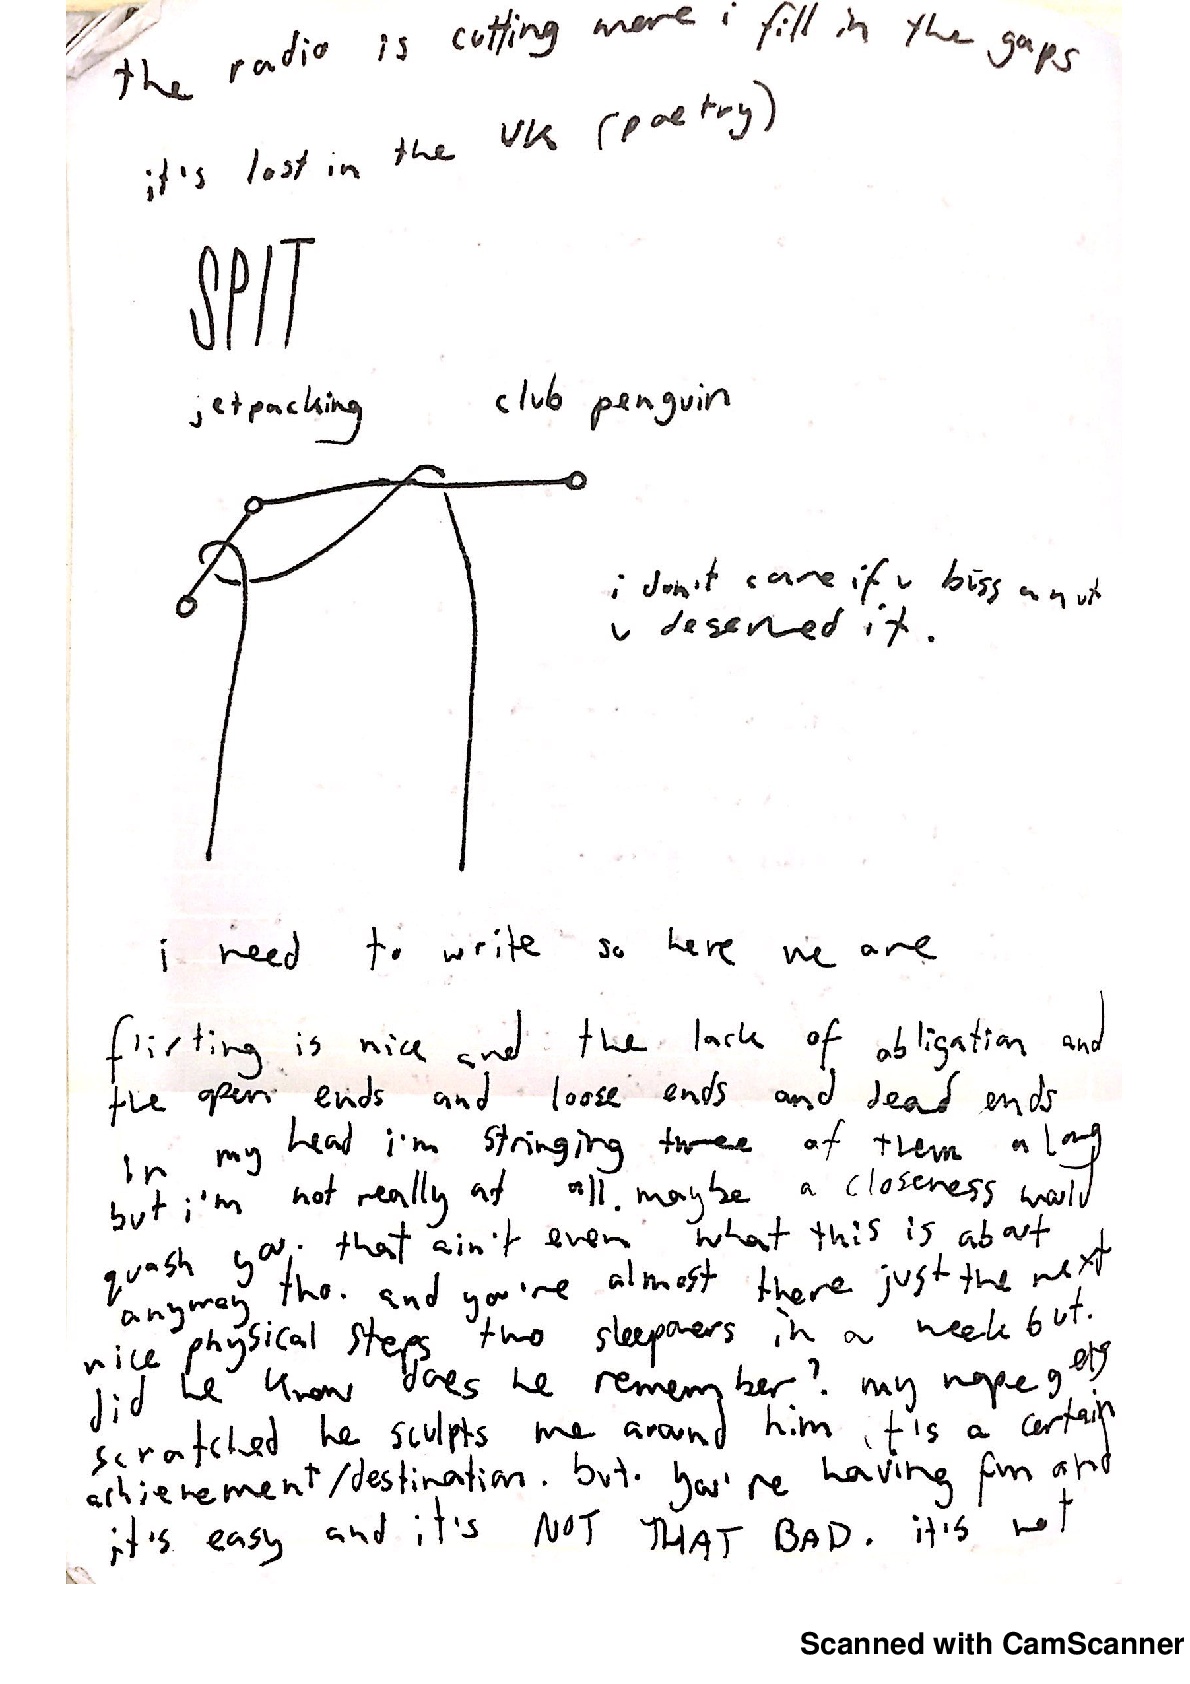 the radio is cutting more i fill in the gaps
it's lost in the UK (poetry)
SPIT
jetpacking club penguin
i don't care if u biss a nut
u deserved it.
i need to write so here we are
flirting is nice and the lack of obligation and
the open ends and loose ends and dead ends
in my head i'm stringing three of them along
but i'm not really at all. maybe a closeness would
quash you. that ain't even what this is about
anyway tho. and you're almost there just the next
nice physical steps two sleepovers in a week but.
did he know does he remember? my nape gets
scratched he sculpts me around him it's a certain
achievement/destination. but. you're having fun and
it's easy and it's NOT THAT BAD. it's not
Scanned with CamScanner